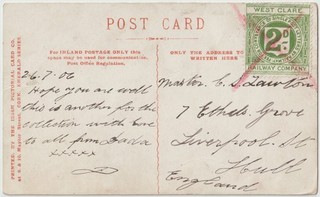 POST CARD
FOR INLAND POSTAGE ONLY this
space may be used for communication.
Post Office Regulation.
ONLY FOR ADDRESS TO
WRITTEN HERE
WEST CLARE
2D
RAILWAY COMPANY
26.7.06
Hope you are well
this is another for the
collection with love
to all from Dada
xxxxx
Master C. S. Lawton
7 Ethels Grove
Liverpool. St
Hull
England